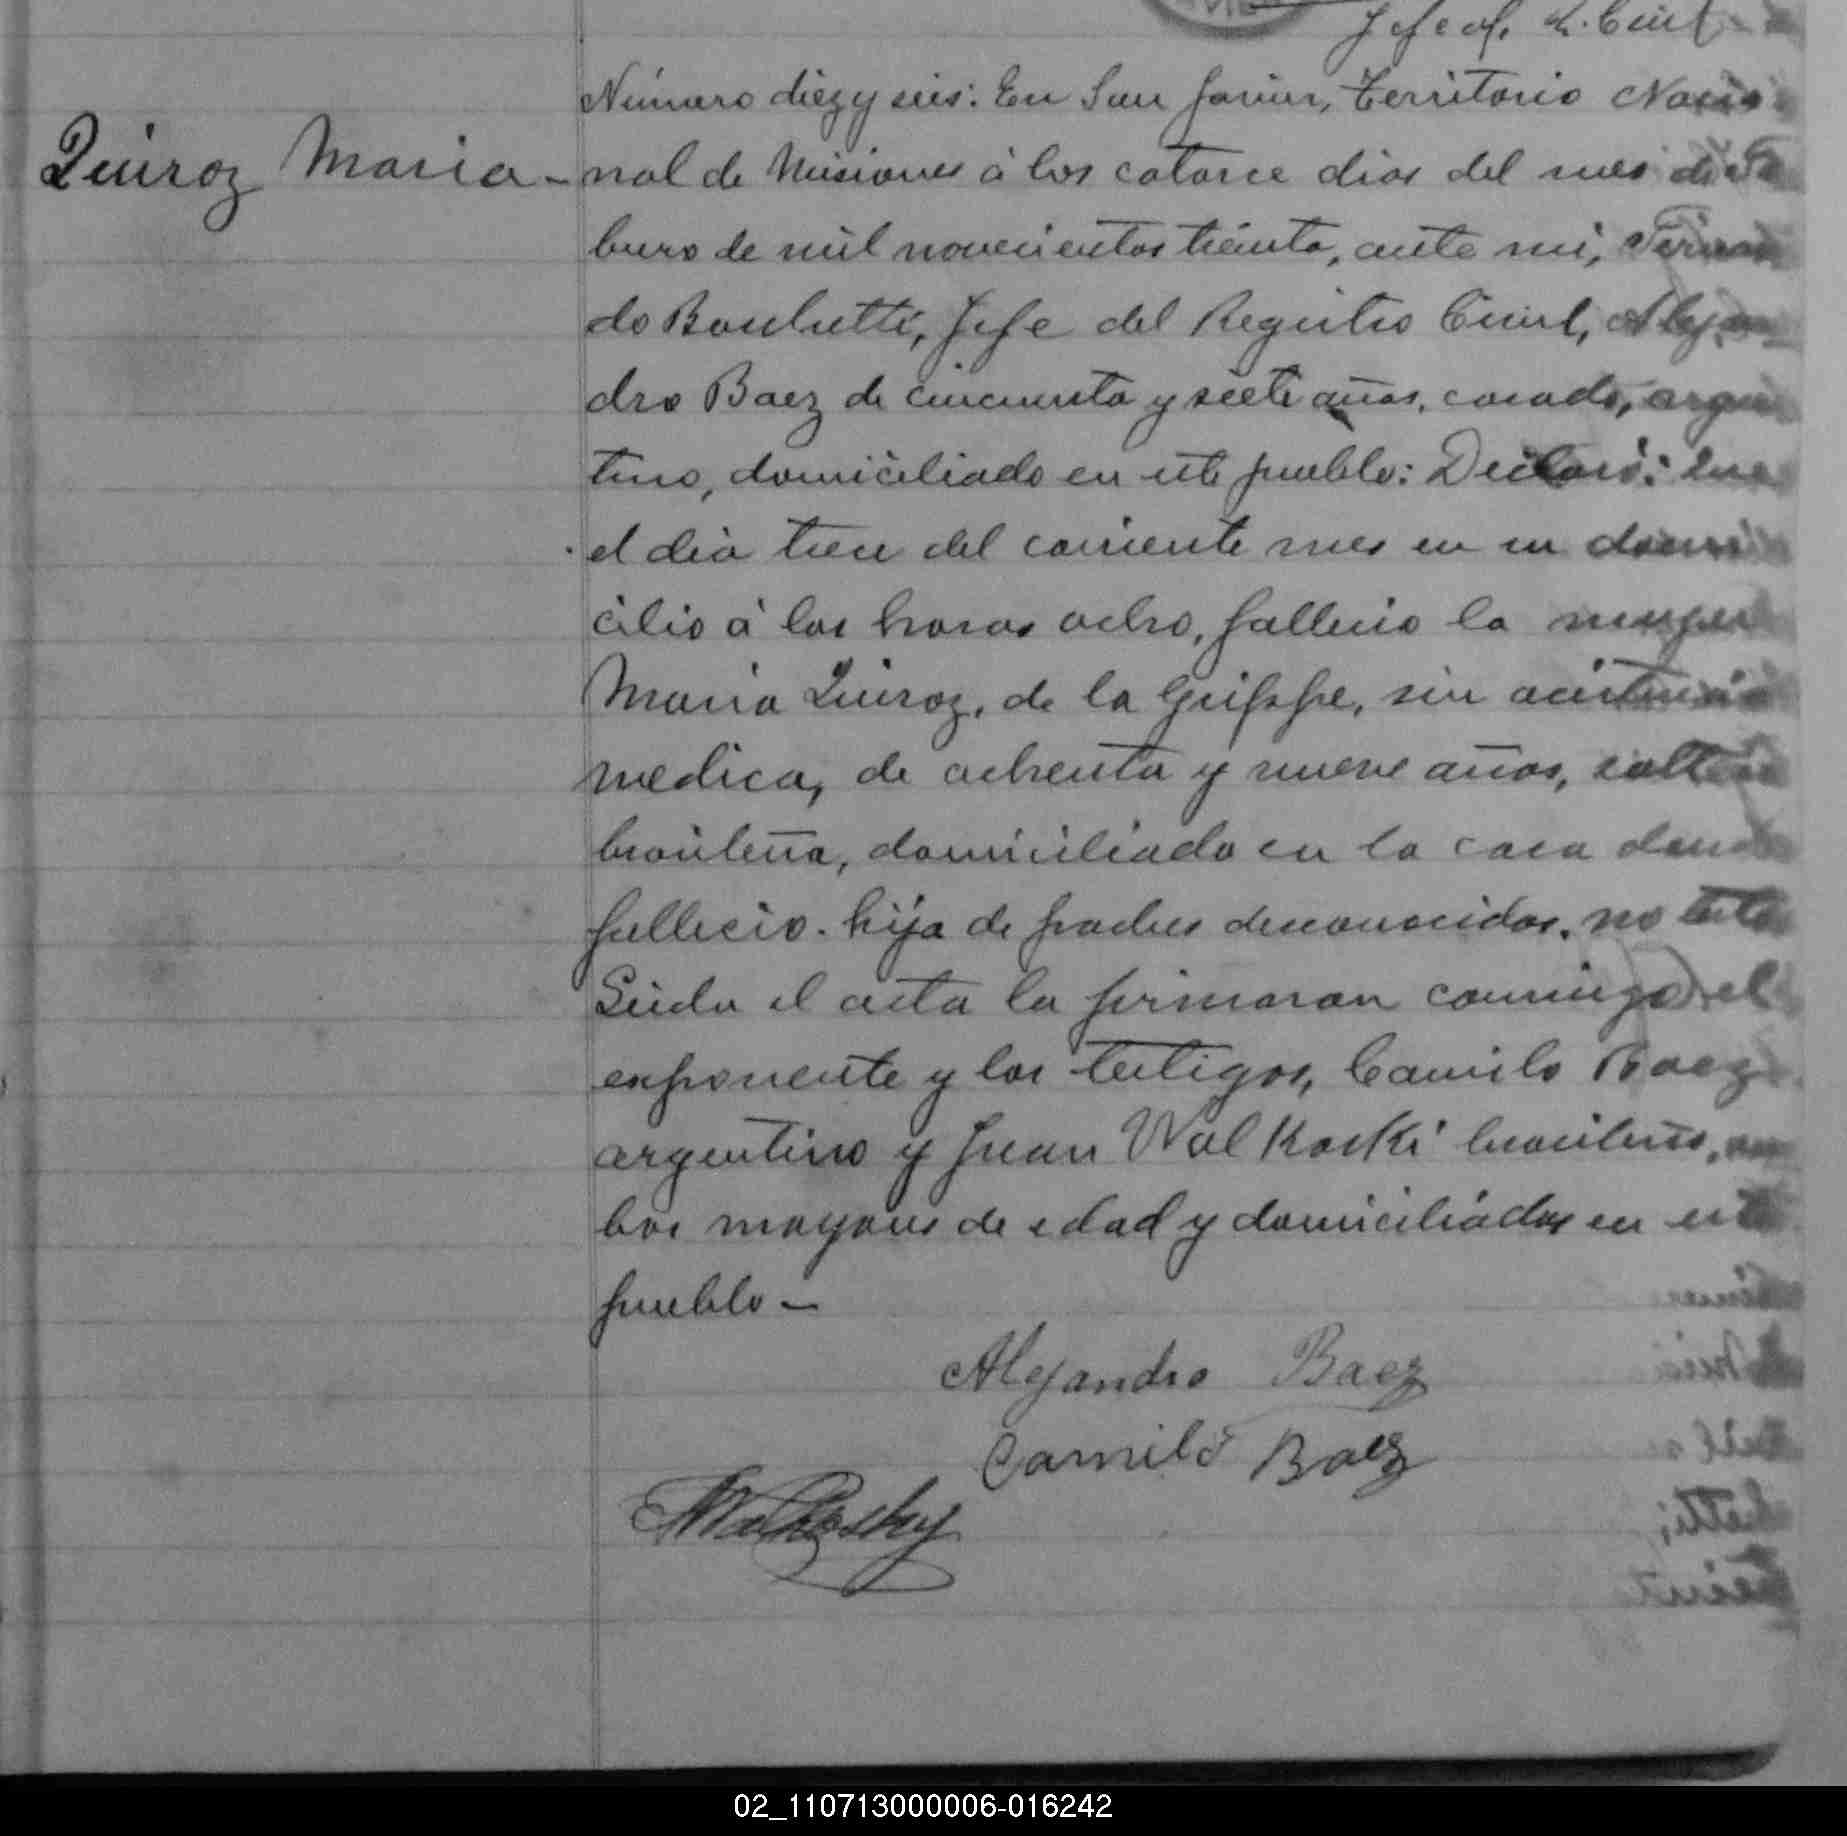 Jefe of. R. Civil
Número diez y seis: En San Javier, Territorio Nacio
Quiroz Maria - nal de Misiones á los catorce dias del mes de Fe
brero de mil novecientos treinta, ante mi, Fernan
do Bouchetti, Jefe del Registro Civil, Alejan
dro Baez de cincuenta y siete años, casado, argen
tino, domiciliado en este pueblo: Declaró: Que
el dia trece del corriente mes en su domi
cilio á las horas ocho, fallecio la mujer
Maria Quiroz, de la Grippe, sin acistencia
medica, de ochenta y nueve años, soltera
brasileña, domiciliada en la casa donde
fallecio. hija de padres desconocidos. no testó
Leida el acta la firmaron conmigo el
exponente y los testigos, Camilo Baez
argentino y Juan Walkoski brasileño, am
bos mayores de edad y domiciliados en este
pueblo -
Alejandro Baez
Camilo Baez
02_110713000006-016242